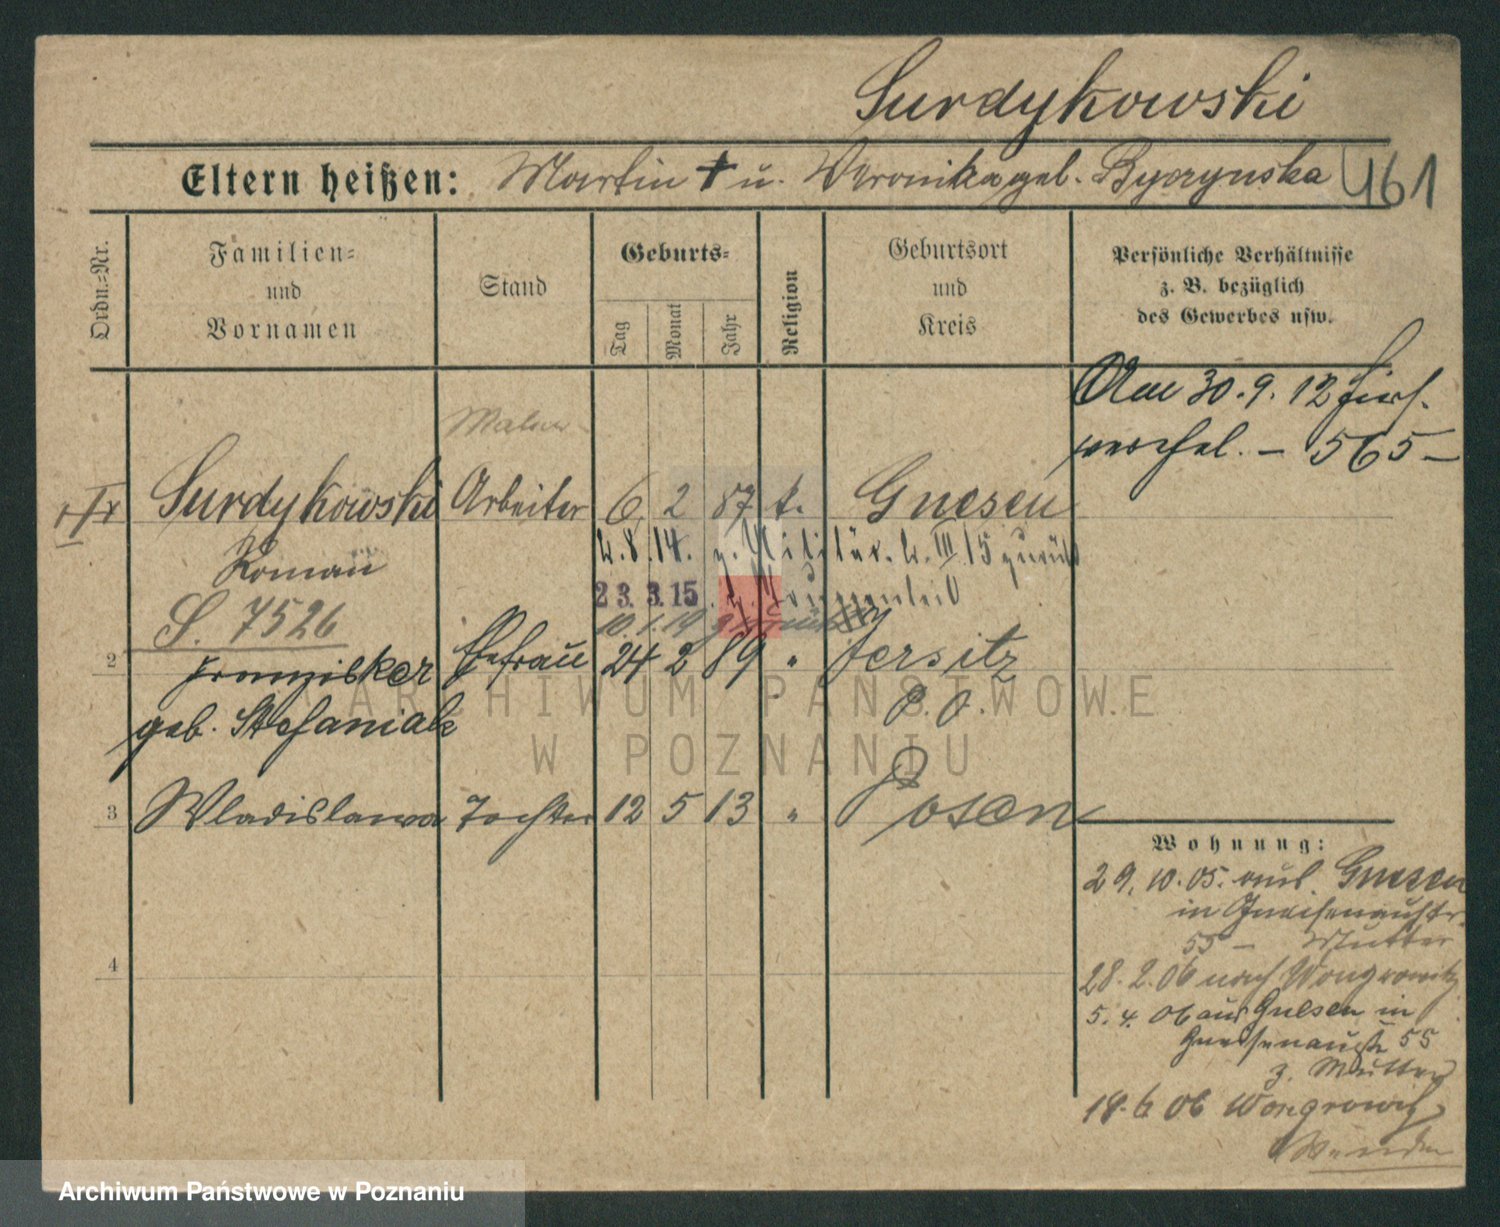 Surdykowski
Eltern heißen: Martin † u. Veronika geb. Byczynska
461
Ordn.-Nr.
Familien- und Vornamen
Stand
Geburts-
Tag
Monat
Jahr
Religion
Geburtsort und Kreis
Persönliche Verhältnisse
z. B. bezüglich
des Gewerbes usw.
Am 30.9.12
565
Maler
Surdykowski Arbeiter 6 2 87 k. Gnesen
Roman
8.14. z. Militär. III 15 zurück
23.3.15.
10.1.19
S. 7526
2
Ehefrau 24 2 89 " Jersitz
geb. Stefaniak
P. O.
3 Wladislawa Tochter 12 5 13 " Posen
4
Wohnung:
29.10.05. aus Gnesen
in Gneisenaustr.
55 – Mutter
28.2.06 nach Wongrowitz
5.4.06 aus Gnesen in
Gneisenaustr 55
z. Mutter
18.6.06 Wongrowitz
ARCHIWUM PAŃSTWOWE
W POZNANIU
Archiwum Państwowe w Poznaniu